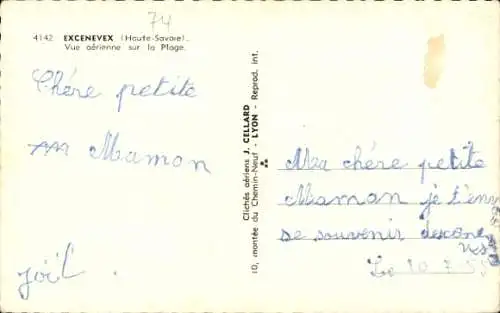 74
4142 EXCENEVEX (Haute-Savoie).
Vue aérienne sur la Plage.
Chére petite
Maman
joël.
Clichés aériens J. CELLARD
10, montée du Chemin-Neuf - LYON - Reprod. int.
Ma chére petite
Maman je t'en
se souvenir
Le 10 7